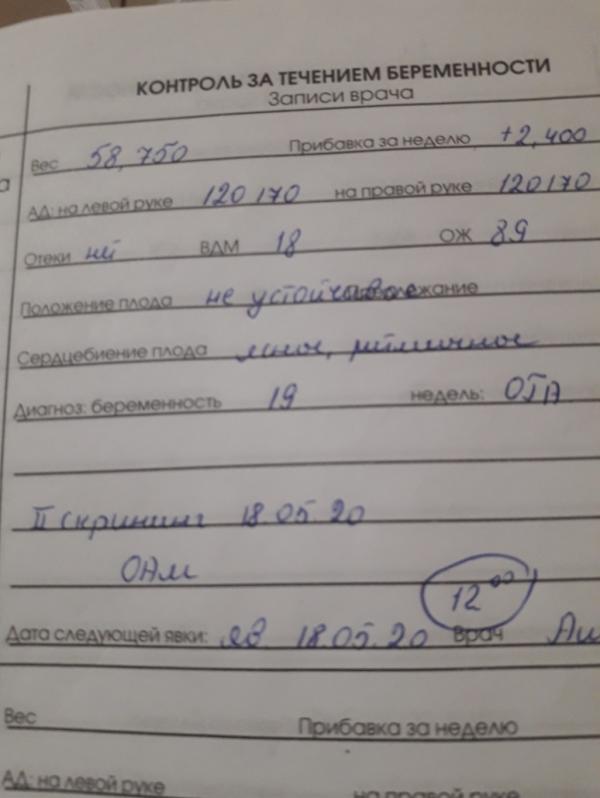 КОНТРОЛЬ ЗА ТЕЧЕНИЕМ БЕРЕМЕННОСТИ
Записи врача
Вес 58,750 Прибавка за неделю +2,400
АД: на левой руке 120/70 на правой руке 120/70
Отеки нет ВДМ 18 ОЖ 89
Положение плода не устойчивое
Сердцебиение плода ясное, ритмичное
Диагноз: беременность 19 недель: ОГА
II скрининг 18.05.20
ОАМ
12⁰⁰
Дата следующей явки: яв. 18.05.20 Врач
Вес Прибавка за неделю
АД: на левой руке на правой руке